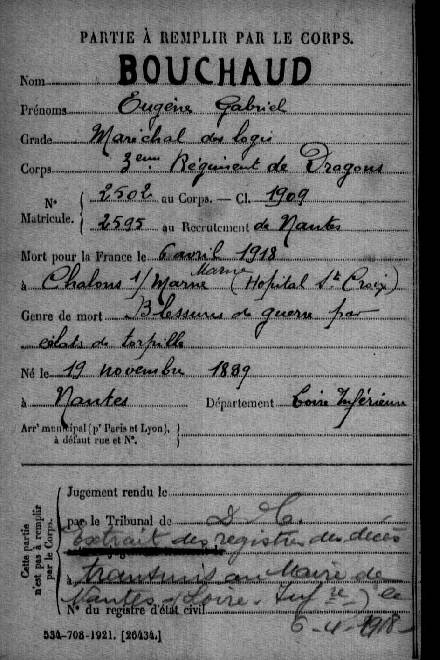 PARTIE À REMPLIR PAR LE CORPS.
Nom BOUCHAUD
Prénoms Eugène Gabriel
Grade Maréchal des logis
Corps 3eme Régiment de Dragons
N° Matricule. { 2502 au Corps. — Cl. 1909
2595 au Recrutement de Nantes
Mort pour la France le 6 avril 1918
Marne
à Chalons s/ Marne (Hopital Ste Croix)
Genre de mort Blessures de guerre par
éclats de torpille
Né le 19 novembre 1889
à Nantes Département Loire Inférieure
Arrt municipal (pr Paris et Lyon), à défaut rue et N°. }
Cette partie n'est pas à remplir par le Corps.
Jugement rendu le
par le Tribunal de D. C.
Extrait des registres des décès
à transmis au Maire de
Nantes (Loire-Infre) le
N° du registre d'état civil
6-4-1918
534-708-1921. [26434.]